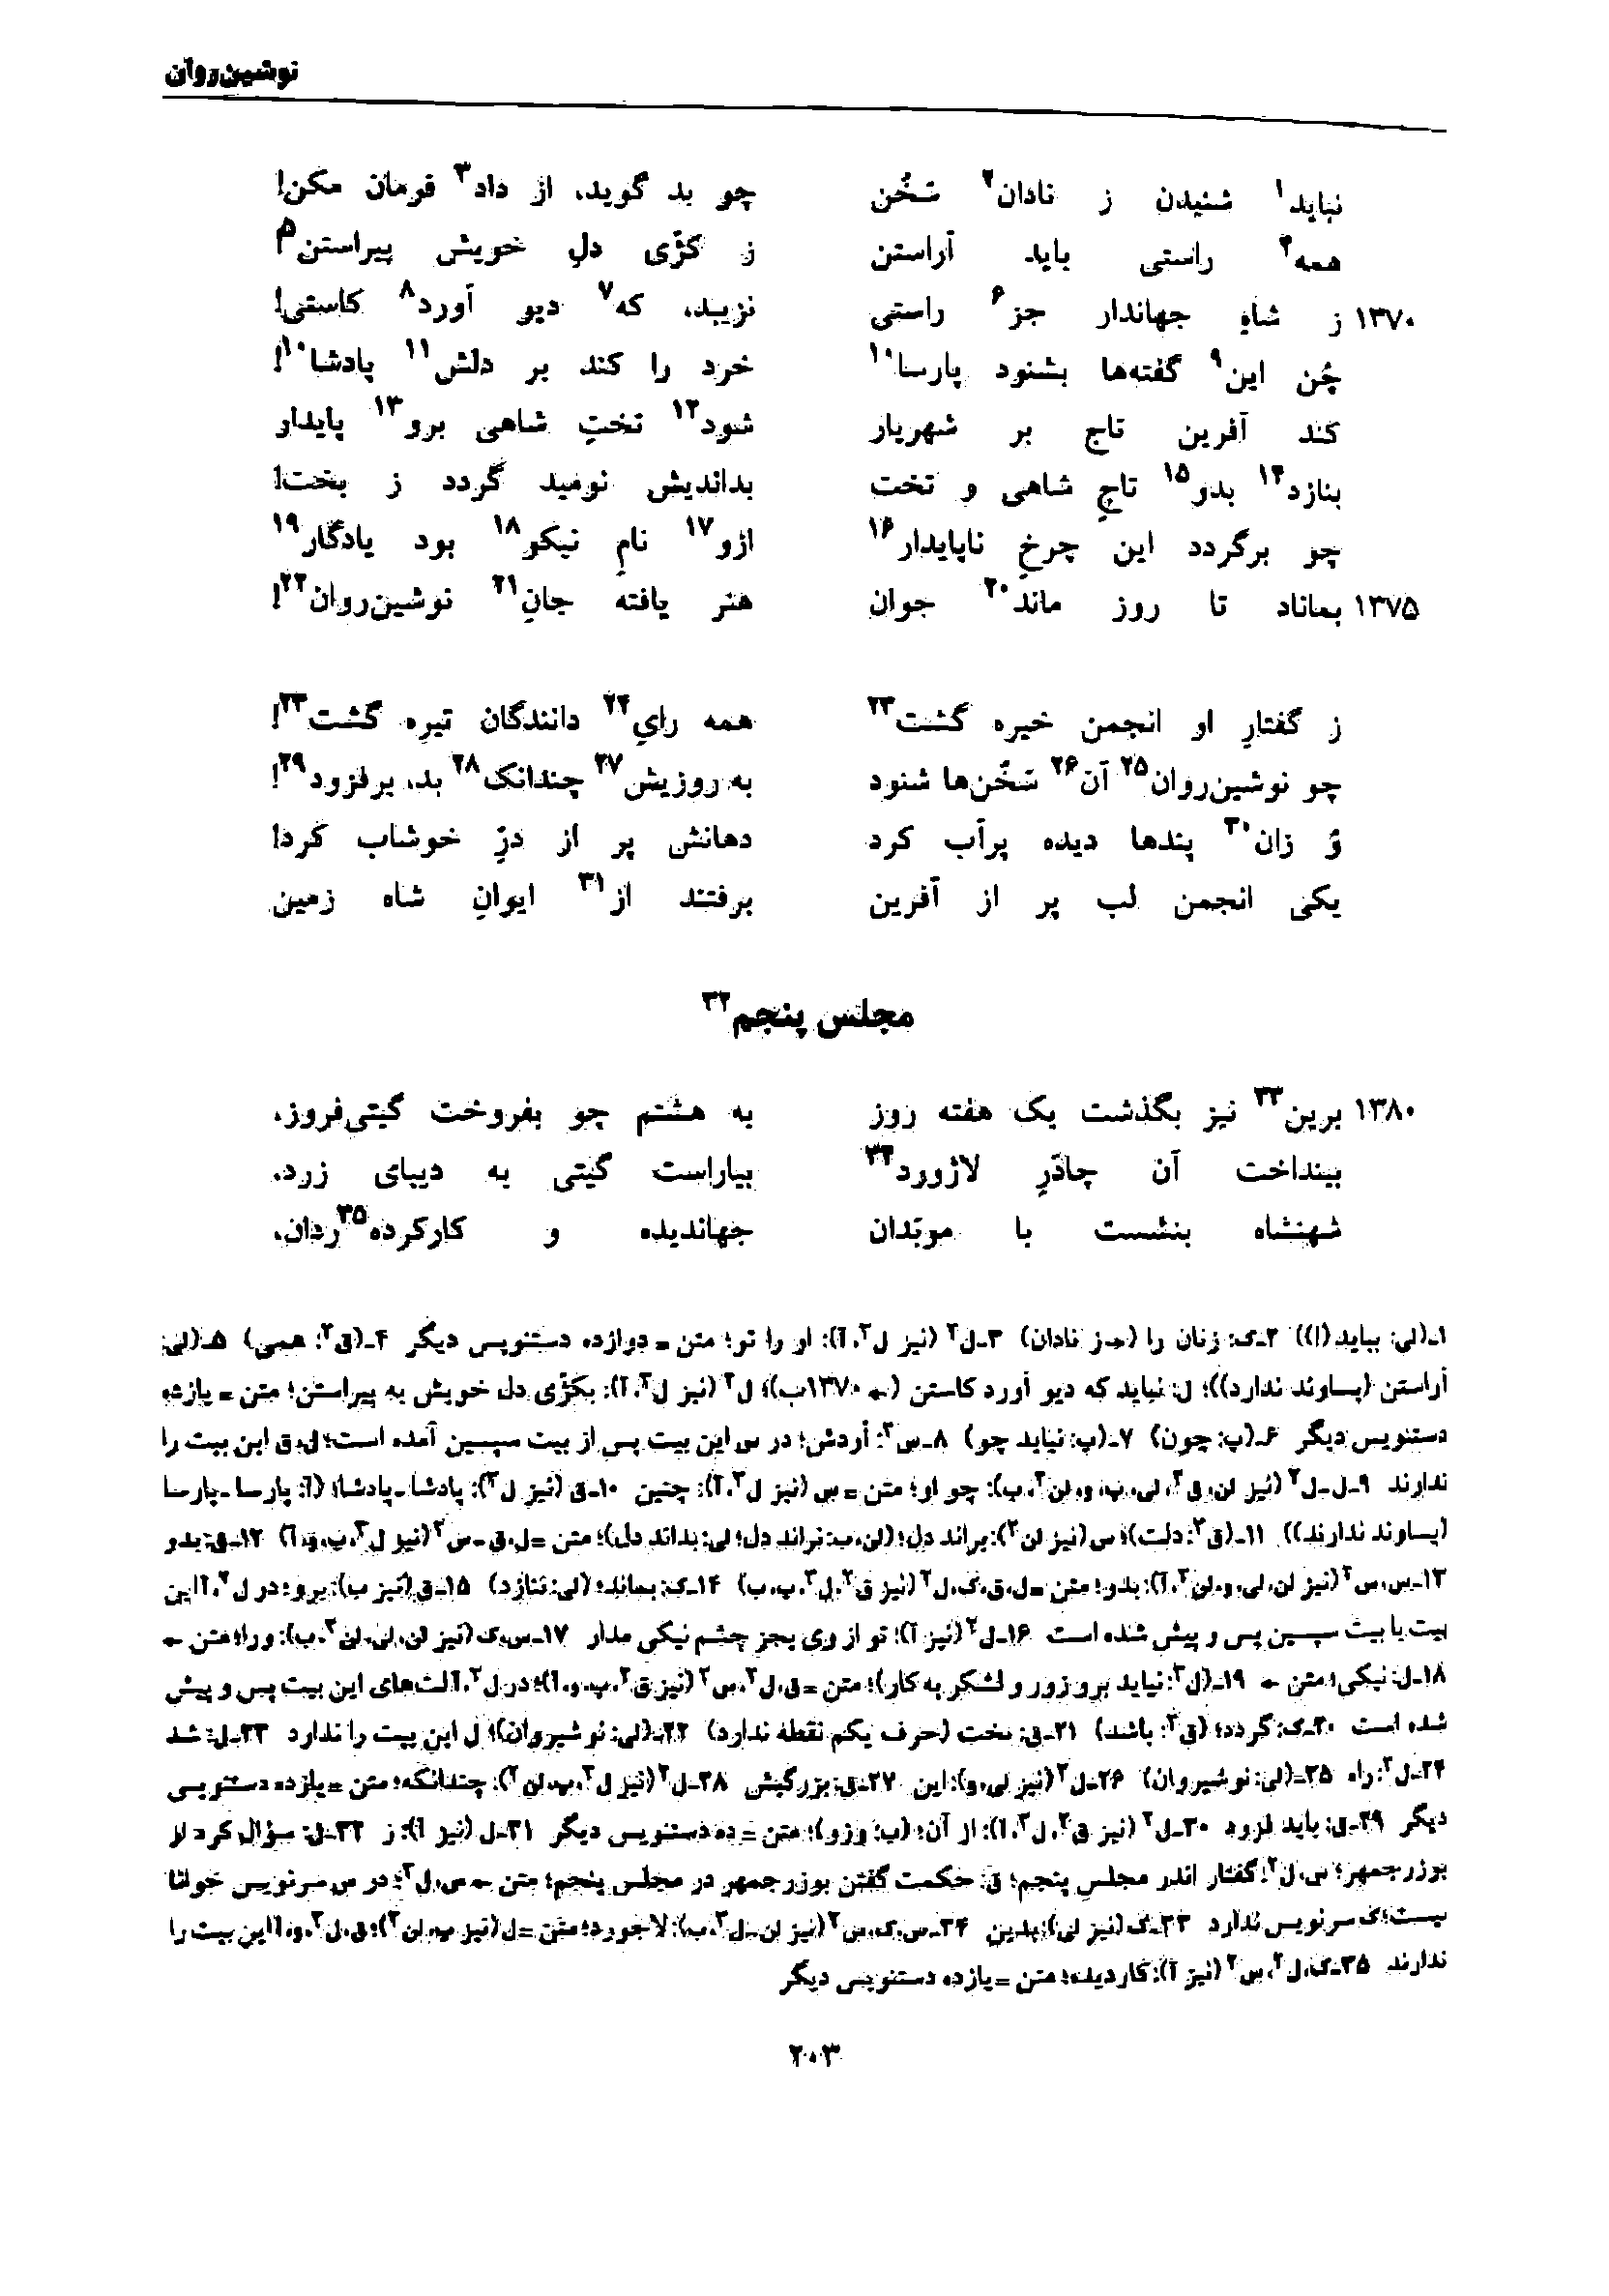 نوشین‌روان
نباید۱ شنیدن ز نادان۲ سَخُن چو بد گوید، از داد۳ فرمان مکن!
همه۴ راستی باید آراستن ز کژّی دلِ خویش پیراستن۵
۱۳۷۰ ز شاهِ جهاندار جز۶ راستی نزیبد، که۷ دیو آورد۸ کاستی!
چُن این۹ گفته‌ها بشنود پارسا۱۰ خرد را کند بر دلش۱۱ پادشا۱۰!
کند آفرین تاج بر شهریار شود۱۲ تختِ شاهی برو۱۳ پایدار
بنازد۱۴ بدو۱۵ تاجِ شاهی و تخت بداندیش نومید گردد ز بخت!
چو برگردد این چرخِ ناپایدار۱۶ ازو۱۷ نامِ نیکو۱۸ بود یادگار۱۹
۱۳۷۵ بماناد تا روز ماند۲۰ جوان هنر یافته جانِ۲۱ نوشین‌روان۲۲!
ز گفتارِ او انجمن خیره گشت۲۳ همه رایِ۲۴ دانندگان تیره گشت۲۳!
چو نوشین‌روان۲۵ آن۲۶ سَخُن‌ها شنود به روزیش۲۷ چندانک۲۸ بد، برفزود۲۹!
وُ زان۳۰ پندها دیده پرآب کرد دهانش پر از درِّ خوشاب کرد!
یکی انجمن لب پر از آفرین برفتند از۳۱ ایوانِ شاه زمین
مجلس پنجم۳۲
۱۳۸۰ برین۳۳ نیز بگذشت یک هفته روز به هشتم چو بفروخت گیتی‌فروز،
بینداخت آن چادَرِ لاژورد۳۴ بیاراست گیتی به دیبای زرد،
شهنشاه بنشست با موبَدان جهاندیده و کارکرده۳۵ ردان،
۱ـ(لی: بباید(!)) ۲ـک: زنان را (ـمـز نادان) ۳ـل۲ (نیز ل۳، آ): او را تو؛ متن = دوازده دستنویس دیگر ۴ـ(ق۲: همی) ۵ـ(لی:
آراستن (پساوند ندارد))؛ ل: نیاید که دیو آورد کاستن (← ۱۳۷۰ب)؛ ل۲ (نیز ل۳، آ): بکژّی دل خویش به پیراستن؛ متن = یازده
دستنویس دیگر ۶ـ(پ: چون) ۷ـ(پ: نیاید چو) ۸ـس۲: آردش؛ در س این بیت پس از بیت سپسین آمده است؛ ل، ق این بیت را
ندارند ۹ـل ـ ل۲ (نیز لن، ق۲، لی، پ، و، لن۲، ب): چو او؛ متن = س (نیز ل۳، آ): چنین ۱۰ـق (نیز ل۳): پادشا ـ پادشا؛ (آ: پارسا ـ پارسا
(پساوند ندارند)) ۱۱ـ(ق۲: دلت)؛ س (نیز لن۲): براند دل؛ (لن، ب: نراند دل؛ لی: بداند دل)؛ متن = ل، ق ـ س۲ (نیز ل۳، پ، و، آ) ۱۲ـق: بدو
۱۳ـس، س۲ (نیز لن، لی، و، لن۲، آ): بدو؛ متن = ل، ق، ک، ل۲ (نیز ق۲، ل۳، پ، ب) ۱۴ـک: بماند؛ (لی: ننازد) ۱۵ـق (نیز ب): برو؛ در ل۳، آ این
بیت با بیت سپسین پس و پیش شده است ۱۶ـل۲ (نیز آ): تو از وی بجز چشم نیکی مدار ۱۷ـس، ک (نیز لن، لی، لن۲، ب): ورا؛ متن ←
۱۸ـل: نیکی؛ متن ← ۱۹ـ(ل۳: نیاید برو زور و لشکر به کار)؛ متن = ق، ل۲، س۲ (نیز ق۲، پ، و، آ)؛ در ل۳، آ لت‌های این بیت پس و پیش
شده است ۲۰ـک: گردد؛ (ق۲: باشد) ۲۱ـق: بخت (حرف یکم نقطه ندارد) ۲۲ـ(لی: نوشیروان)؛ ل این بیت را ندارد ۲۳ـل: شد
۲۴ـل۲: راه ۲۵ـ(لی: نوشیروان) ۲۶ـل۲ (نیز لی، و): این ۲۷ـق: بزرگیش ۲۸ـل۲ (نیز ل۳، پ، لن۲): چندانکه؛ متن = یازده دستنویس
دیگر ۲۹ـق: باید فزود ۳۰ـل۲ (نیز ق۲، ل۳، آ): از آن؛ (ب: وزو)؛ متن = ده دستنویس دیگر ۳۱ـل (نیز آ): ز ۳۲ـل: سؤال کرد از
بوزرجمهر؛ س، ل۲: گفتار اندر مجلسِ پنجم؛ ق: حکمت گفتن بوزرجمهر در مجلس پنجم؛ متن ← س، ل۲؛ در س سرنویس خوانا
نیست؛ ک سرنویس ندارد ۳۳ـک (نیز لی): بدین ۳۴ـس، ک، س۲ (نیز لن ـ ل۳، ب): لاجورد؛ متن = ل (نیز پ، لن۲)؛ ق، ل۲، و، آ این بیت را
ندارند ۳۵ـک، ل۲، س۲ (نیز آ): کاردیده؛ متن = یازده دستنویس دیگر
۲۰۳